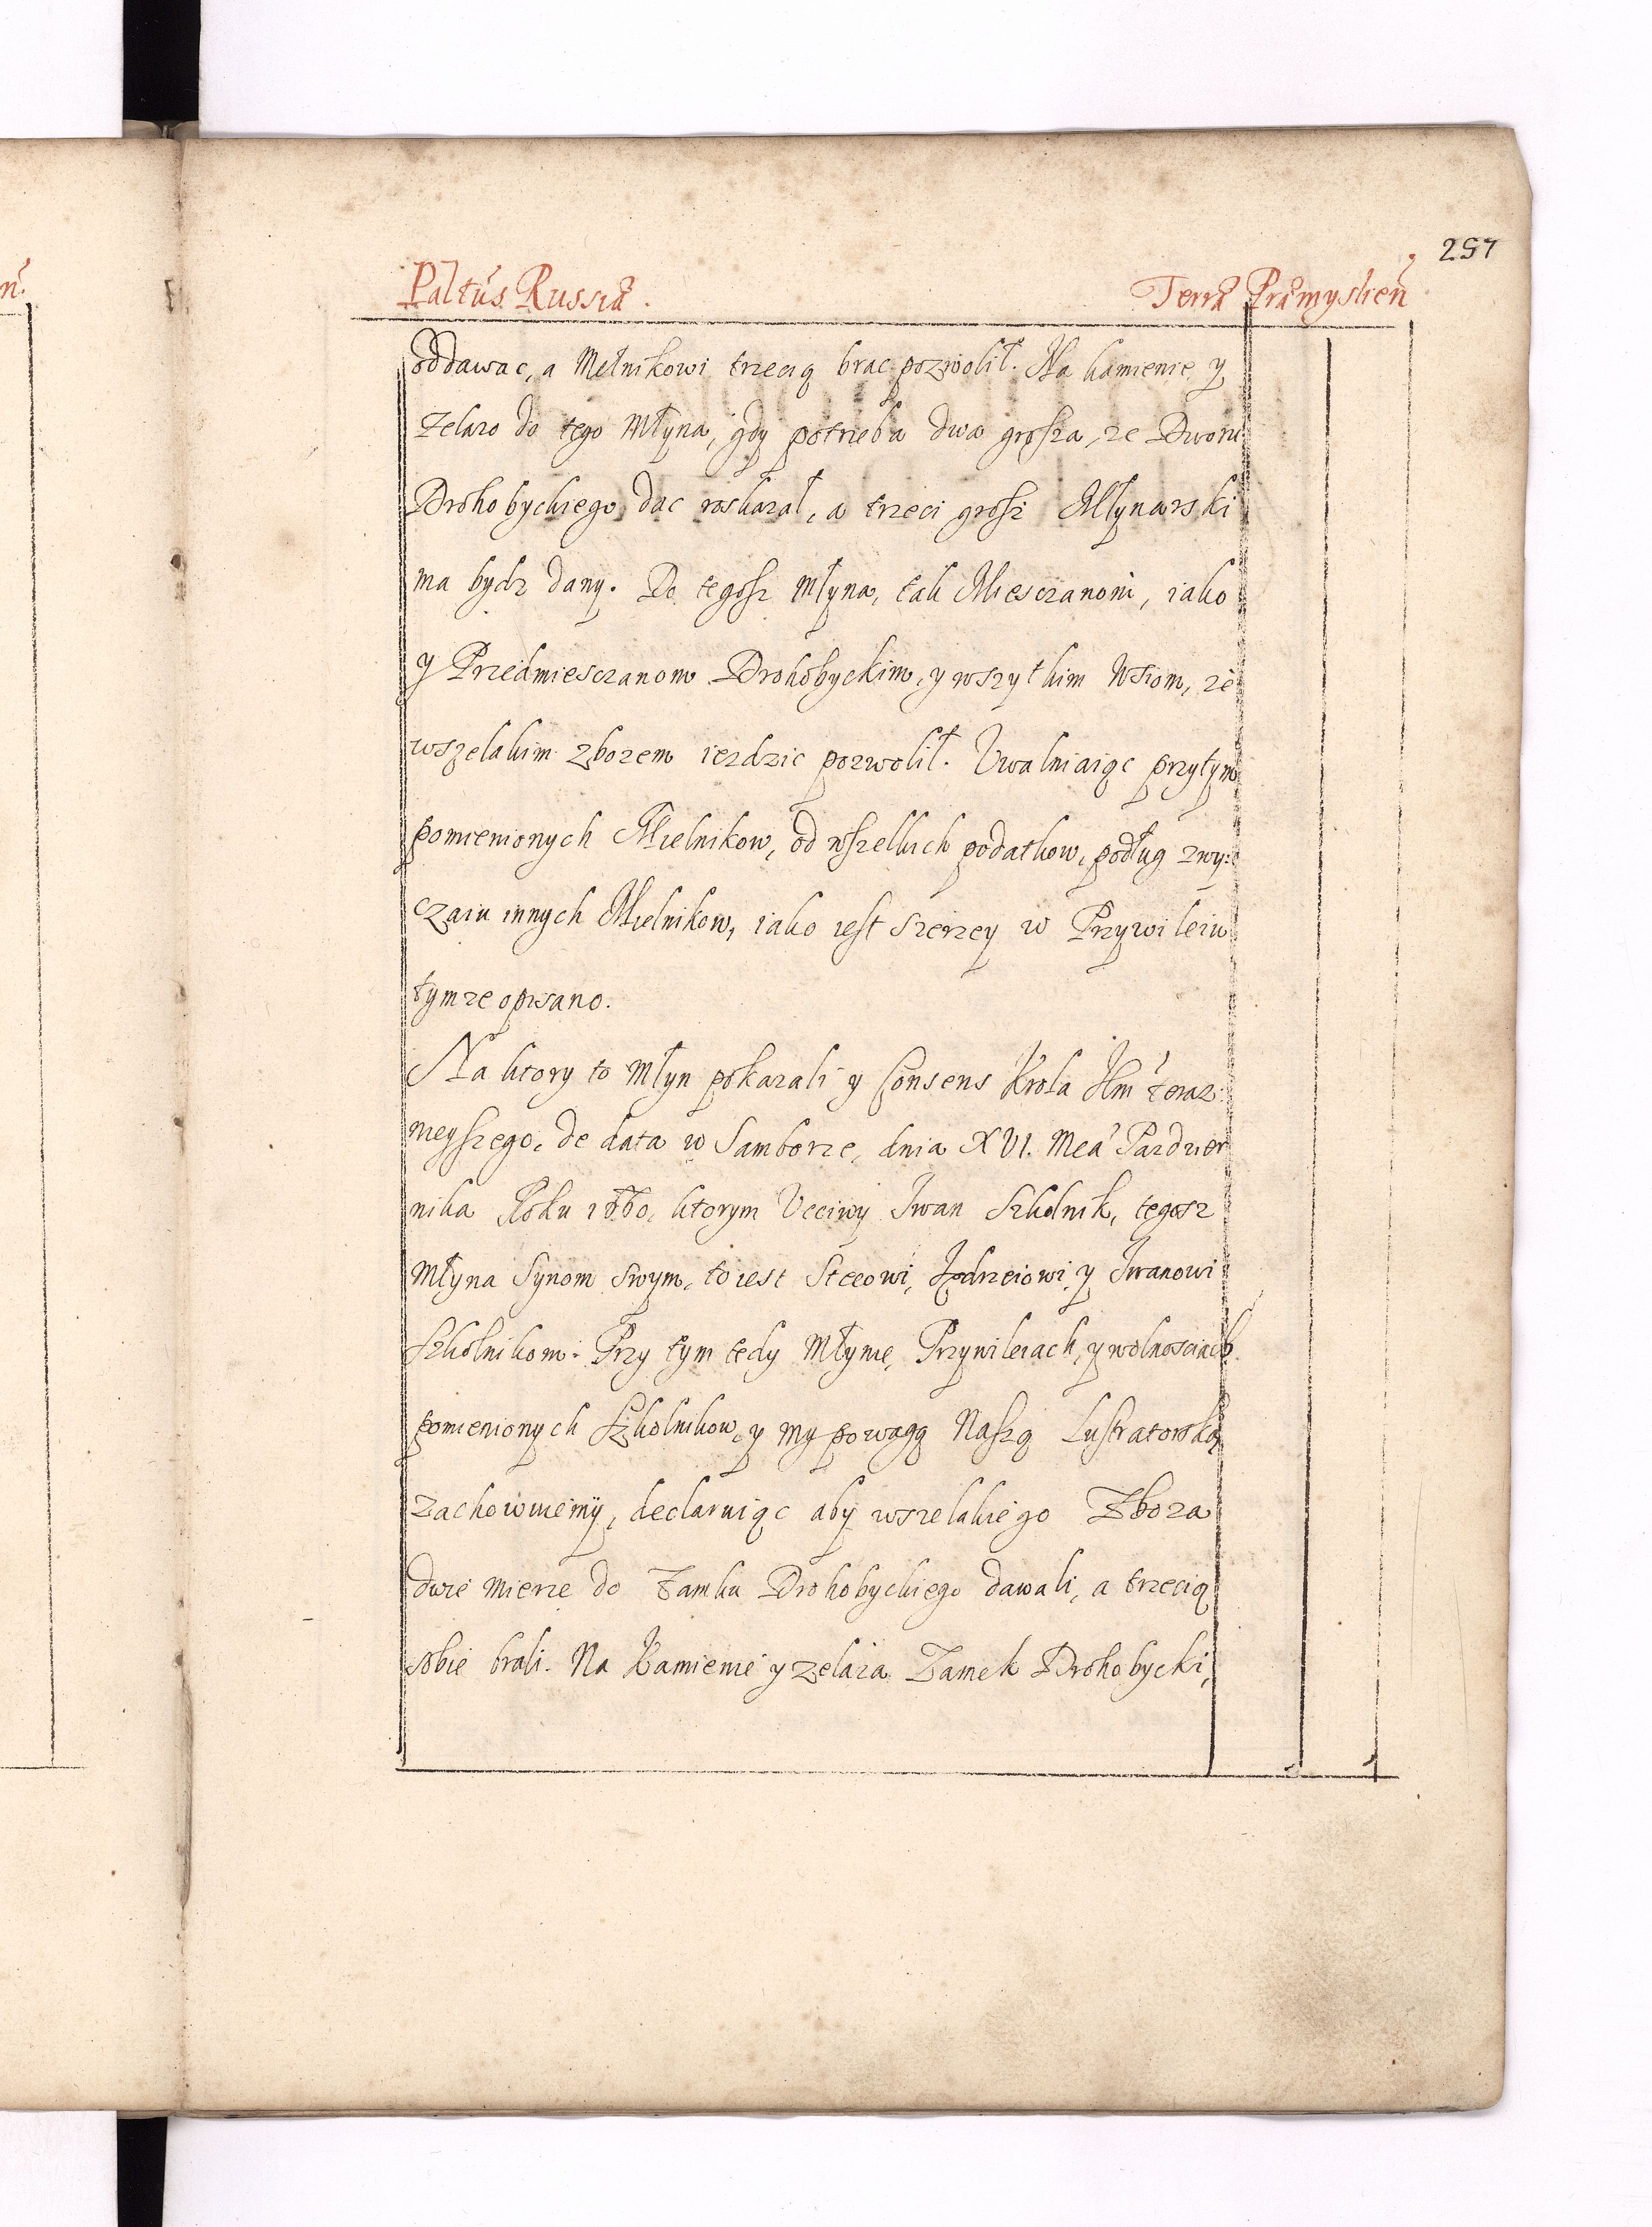 257
Paltus Russiæ. Terræ Præmyslien
oddawac, a Mełnikowi trzecią brac pozwolił. Na kamienie y
zelazo do tego Młyna, gdy potrzeba dwa grosza, ze Dworu
Drohobyckiego dac roskazał, a trzeci grosz Młynarski
ma bydz dany. Do tegosz Młyna, tak Miesczanom, iako
y Przedmiesczanom Drohobyckim, y wszytkim Wsiom, ze
wszelakim zbozem iezdzic pozwolił. Uwalniaiąc przytym
pomienionych Mielnikow, od wszelkich podatkow, podług zwy:
czaiu innych Mielnikow, iako iest szerzey w Przywileiu
tymze opisano.
Na ktory to Młyn pokazali y Consens Krola Jm teraz:
nieyszego, de data w Samborze, dnia XVI. Mca Pazdzier
nika Roku 1660, ktorym Ucciwy Iwan Szkolnik, tegosz
Młyna Synom swym, to iest Stecowi, Jędrzeiowi, y Iwanowi
Szkolnikom. Przy tym tedy Młynie, Przywileiach, y wolnosciach
pomienionych Szkolnikow, y my powagą Naszą Lustratorską
zachowuiemy, declaruiąc aby wszelakiego Zboza
dwie mierze do Zamku Drohobyckiego dawali, a trzecią
sobie brali. Na Kamienie y zelaza Zamek Drohobycki,